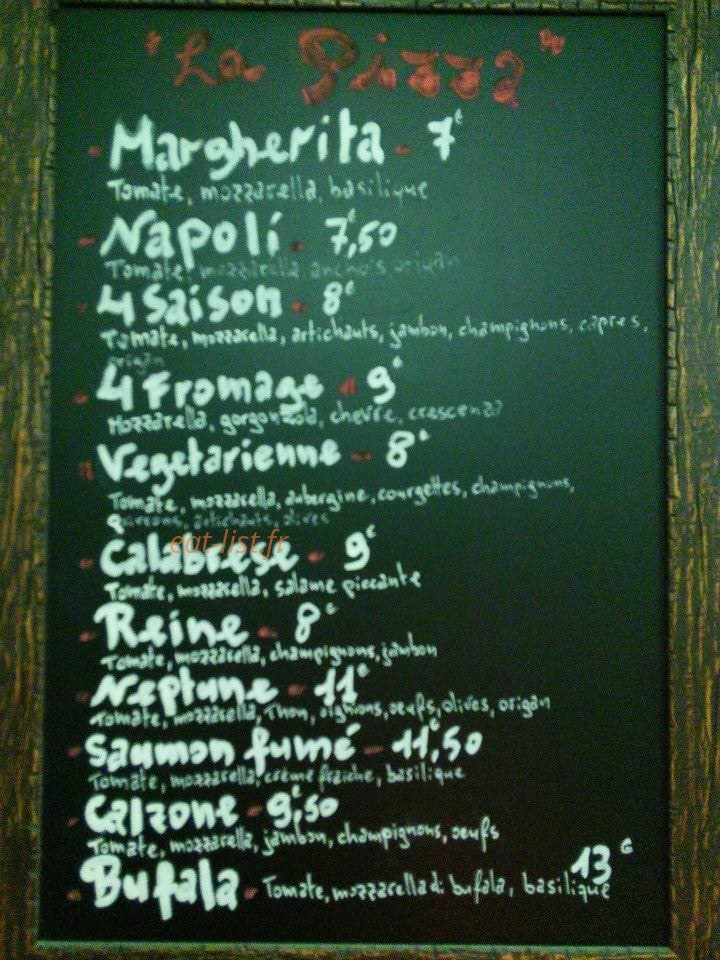 "La Pizza"
Margherita - 7€
Tomate, mozzarella, basilique
Napoli - 7,50€
Tomate, mozzarella anchois origan
4 Saison - 8€
Tomate, mozzarella, artichauts, jambon, champignons, capres,
origan
4 Fromage - 9€
Mozzarella, gorgonzola, chevre, crescenza
Vegetarienne - 8€
Tomate, mozzarella, aubergine, courgettes, champignons,
poivrons, artichauts, olives
eat-list.fr
Calabrese - 9€
Tomate, mozzarella, salame piccante
Reine - 8€
Tomate, mozzarella, champignons, jambon
Neptune - 11€
Tomate, mozzarella, Thon, oignons, oeufs, olives, origan
Saumon fumé - 11,50€
Tomate, mozzarella, crème fraiche, basilique
Calzone - 9,50€
Tomate, mozzarella, jambon, champignons, oeufs
13€
Bufala - Tomate, mozzarella di bufala, basilique